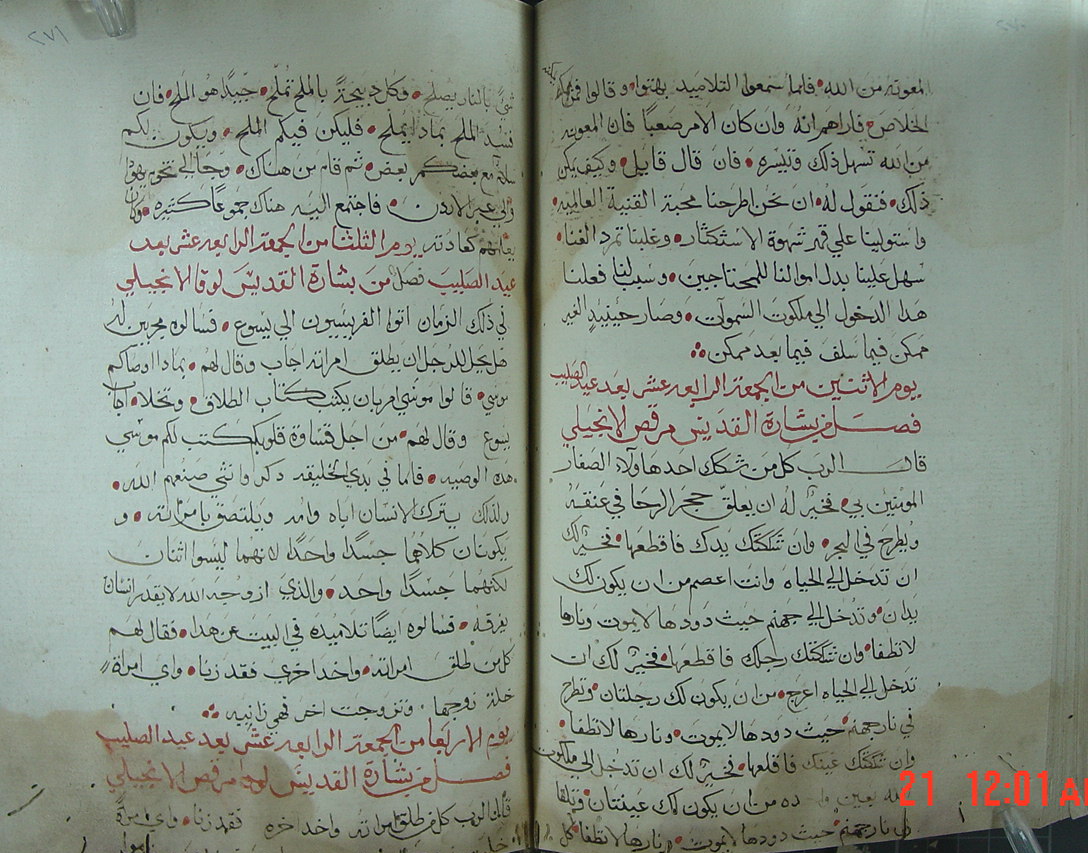 المعونه من الله فلما سمعوا التلاميد بهتوا وقالوا فمن يمكنه
الخلاص فاراهم انه وان كان الامر صعبًا فان المعونه
من الله تسهل ذلك وتيسره فان قال قايل وكيف يكن
ذلك فنقول له ان نحن اطرحنا محبة القنية العالميه
واستولينا علي قهر شهوة الاستكثار وغلبنا تمرد الغنا
سهل علينا بدل اموالنا للمحتاجين وسبب لنا فعلنا
هدا الدخول الي ملكوت السموات وصار حينيدٍ الغير
ممكن فيما سلف فيما بعد ممكن
يوم الاثنين من الجمعة الرابعه عشر بعد عيد الصليب
فصل من بشارة القديس مرقص الانجيلي
قال الرب كل من شكك احد هاولاء الصغار
المومنين بي فخير له ان يعلق حجر الرحا في عنقه
ويطرح في البحر وان شككتك يدك فاقطعها فخير لك
ان تدخل الي الحياه وانت اعصم من ان يكون لك
يدان وتدخل الي جهنم حيث دودها لا يموت ونارها
لا تطفا وان شككتك رجلك فاقطعها فخير لك ان
تدخل الي الحياه اعرج من ان يكون لك رجلتان وتطرح
في نار جهنم حيث دودها لا يموت ونارها لا تطفا
وان شككتك عينك فاقلعها فخير لك ان تدخل الي ملكوت
الله بعين من ان يكون لك عينتان وتلقا
في نار جهنم حيث دودها لا يموت ونارها لا تطفا كل
٢٧١
شي بالنار يصلح وكل دبيحةً بالملح تملح جيدًا هو الملح فان
فسد الملح بمادا يملح فليكن فيكم الملح ويكون لكم
سلامه مع بعضكم بعض ثم قام من هناك وجا الي تخوم يهودا
والي عبر الاردن فاجتمع اليه هناك جموعًا كثيره وكان
يعلمهم كعادته يوم الثلثا من الجمعة الرابعه عشر بعد
عيد الصليب فصل من بشارة القديس لوقا الانجيلي
في ذلك الزمان اتوا الفريسيون الي يسوع فسالوه مجربين له
هل يحل للرجل ان يطلق امراته اجاب وقال لهم بمادا اوصاكم
موسي قالوا موسي امر بان يكتب كتاب الطلاق وتخلا اجاب
يسوع وقال لهم من اجل قساوة قلوبكم كتب لكم موسي
هده الوصيه فاما في بدي الخليقه دكر وانثي صنعهم الله
ولذلك يترك الانسان اباه وامه ويلتصق بامراته و
يكونان كلاهما جسدًا واحدًا لانهما ليسوا اثنان
لكنهما جسدًا واحد والذي ازوجه الله لا يقدر انسان
يفرقه فسالوه ايضًا تلاميده في البيت عن هدا فقال لهم
كل من طلق امراته واخد اخري فقد زنا واي امراة
خلت زوجها وتزوجت اخر فهي زانيه
يوم الاربعا من الجمعة الرابعه عشر بعد عيد الصليب
فصل من بشارة القديس مرقص الانجيلي
قال الرب كل من طلق امراته واخد اخره فقد زنا واي امراةً
21 12:01 A